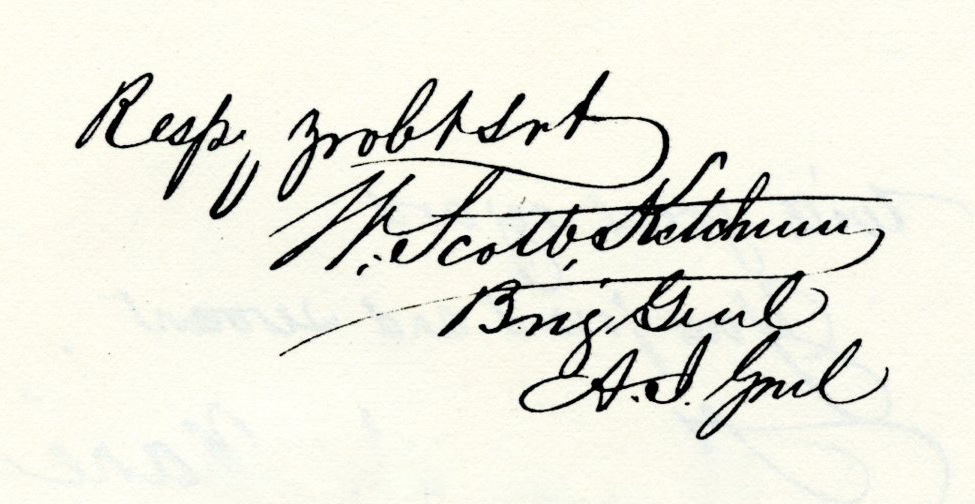 Respy yr obt Srt
Wm. Scott Ketchum
Brig Genl
A. I. Genl